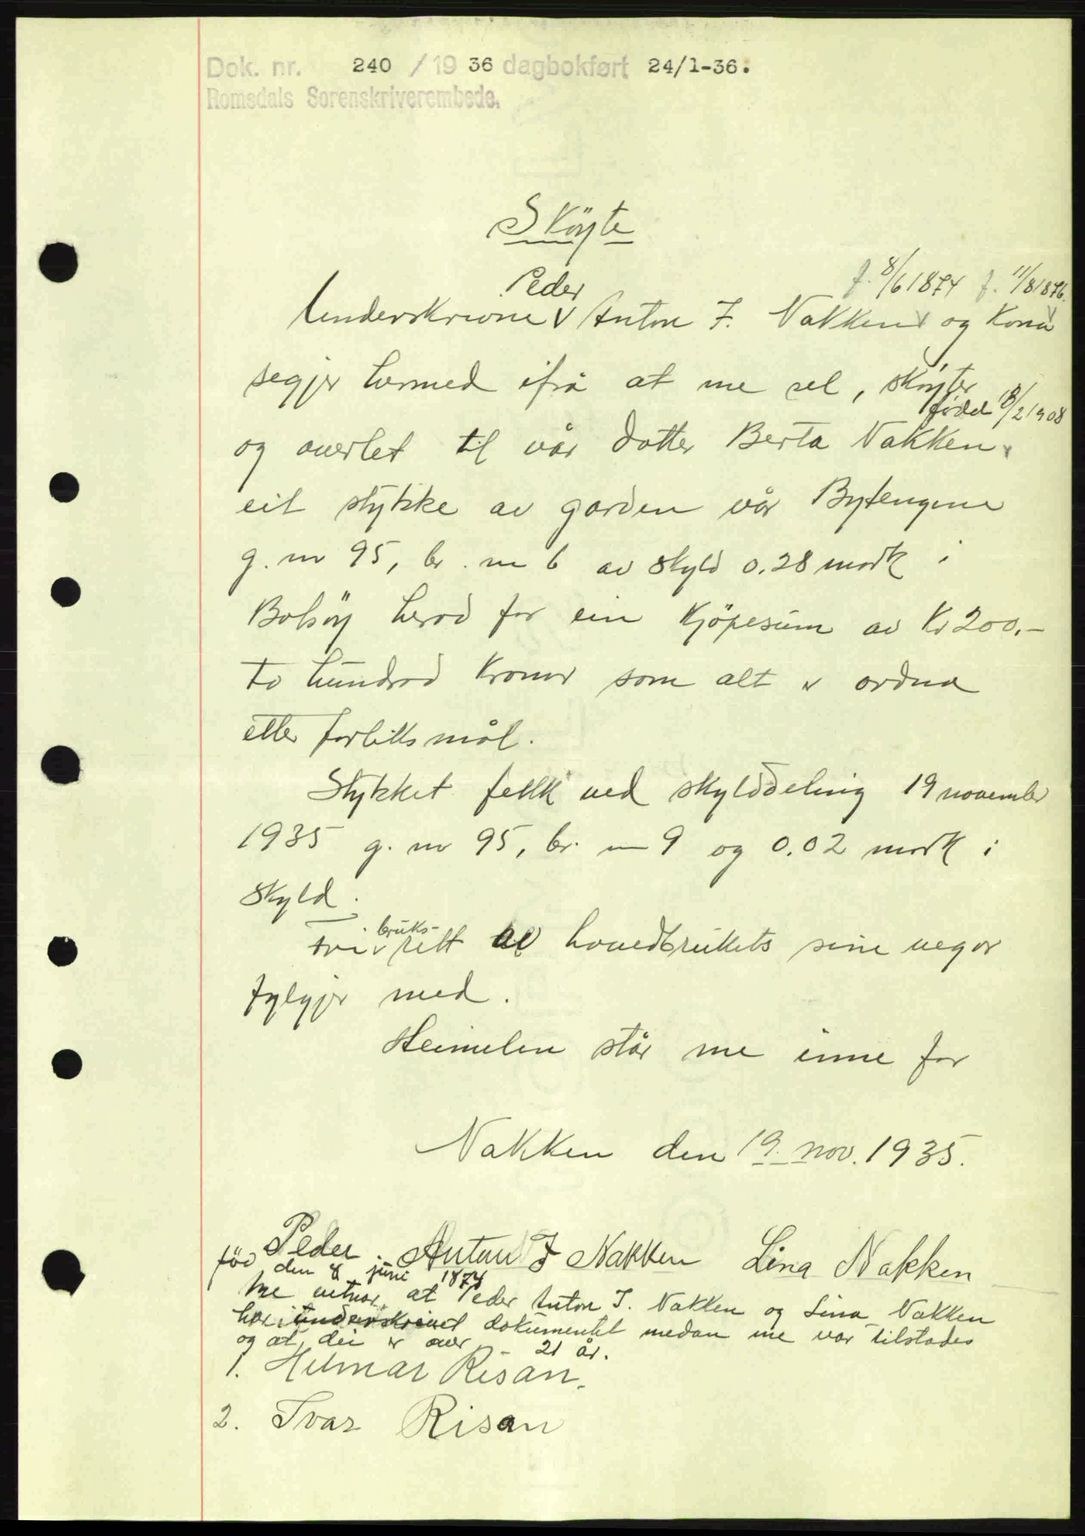 Dok. nr. 240 / 19 36 dagbokført 24/1-36.
Romsdals Sorenskriverembede.
Sköyte
Peder f. 8/6 1874 f. 11/8 1876.
Underskrivne V Anton J. Nakken V og Kona V
segjer hermed ifrå at me sel, sköyter
född 18/2 1908
og overlet til vår dotter Berta Nakken v
eit stykke av garden vår Bytengene
g. nr 95, br. nr 6 av skyld 0.28 mark i
Bolsöy herad for ein Kjöpesum av Kr 200.-
to hundrad Kroner som alt er ordna
etter forliksmål.
Stykket fekk ved skylddeling 19 november
1935 g. nr 95, br. nr 9 og 0.02 mark i
skyld.
bruks-
Fri v rett av hovedbrukets sine vegar
fylgjer med.
Heimelen står me inne for
Nakken den 19. nov. 1935.
Peder Anton J Nakken Lina Nakken
föd den 8 juni 1874
Me vitnar at Peder Anton J. Nakken og Lina Nakken
har underskrivet dokumentet medan me var tilstades
og at dei er over 21 år.
1. Hilmar Risan.
2. Ivar Risan